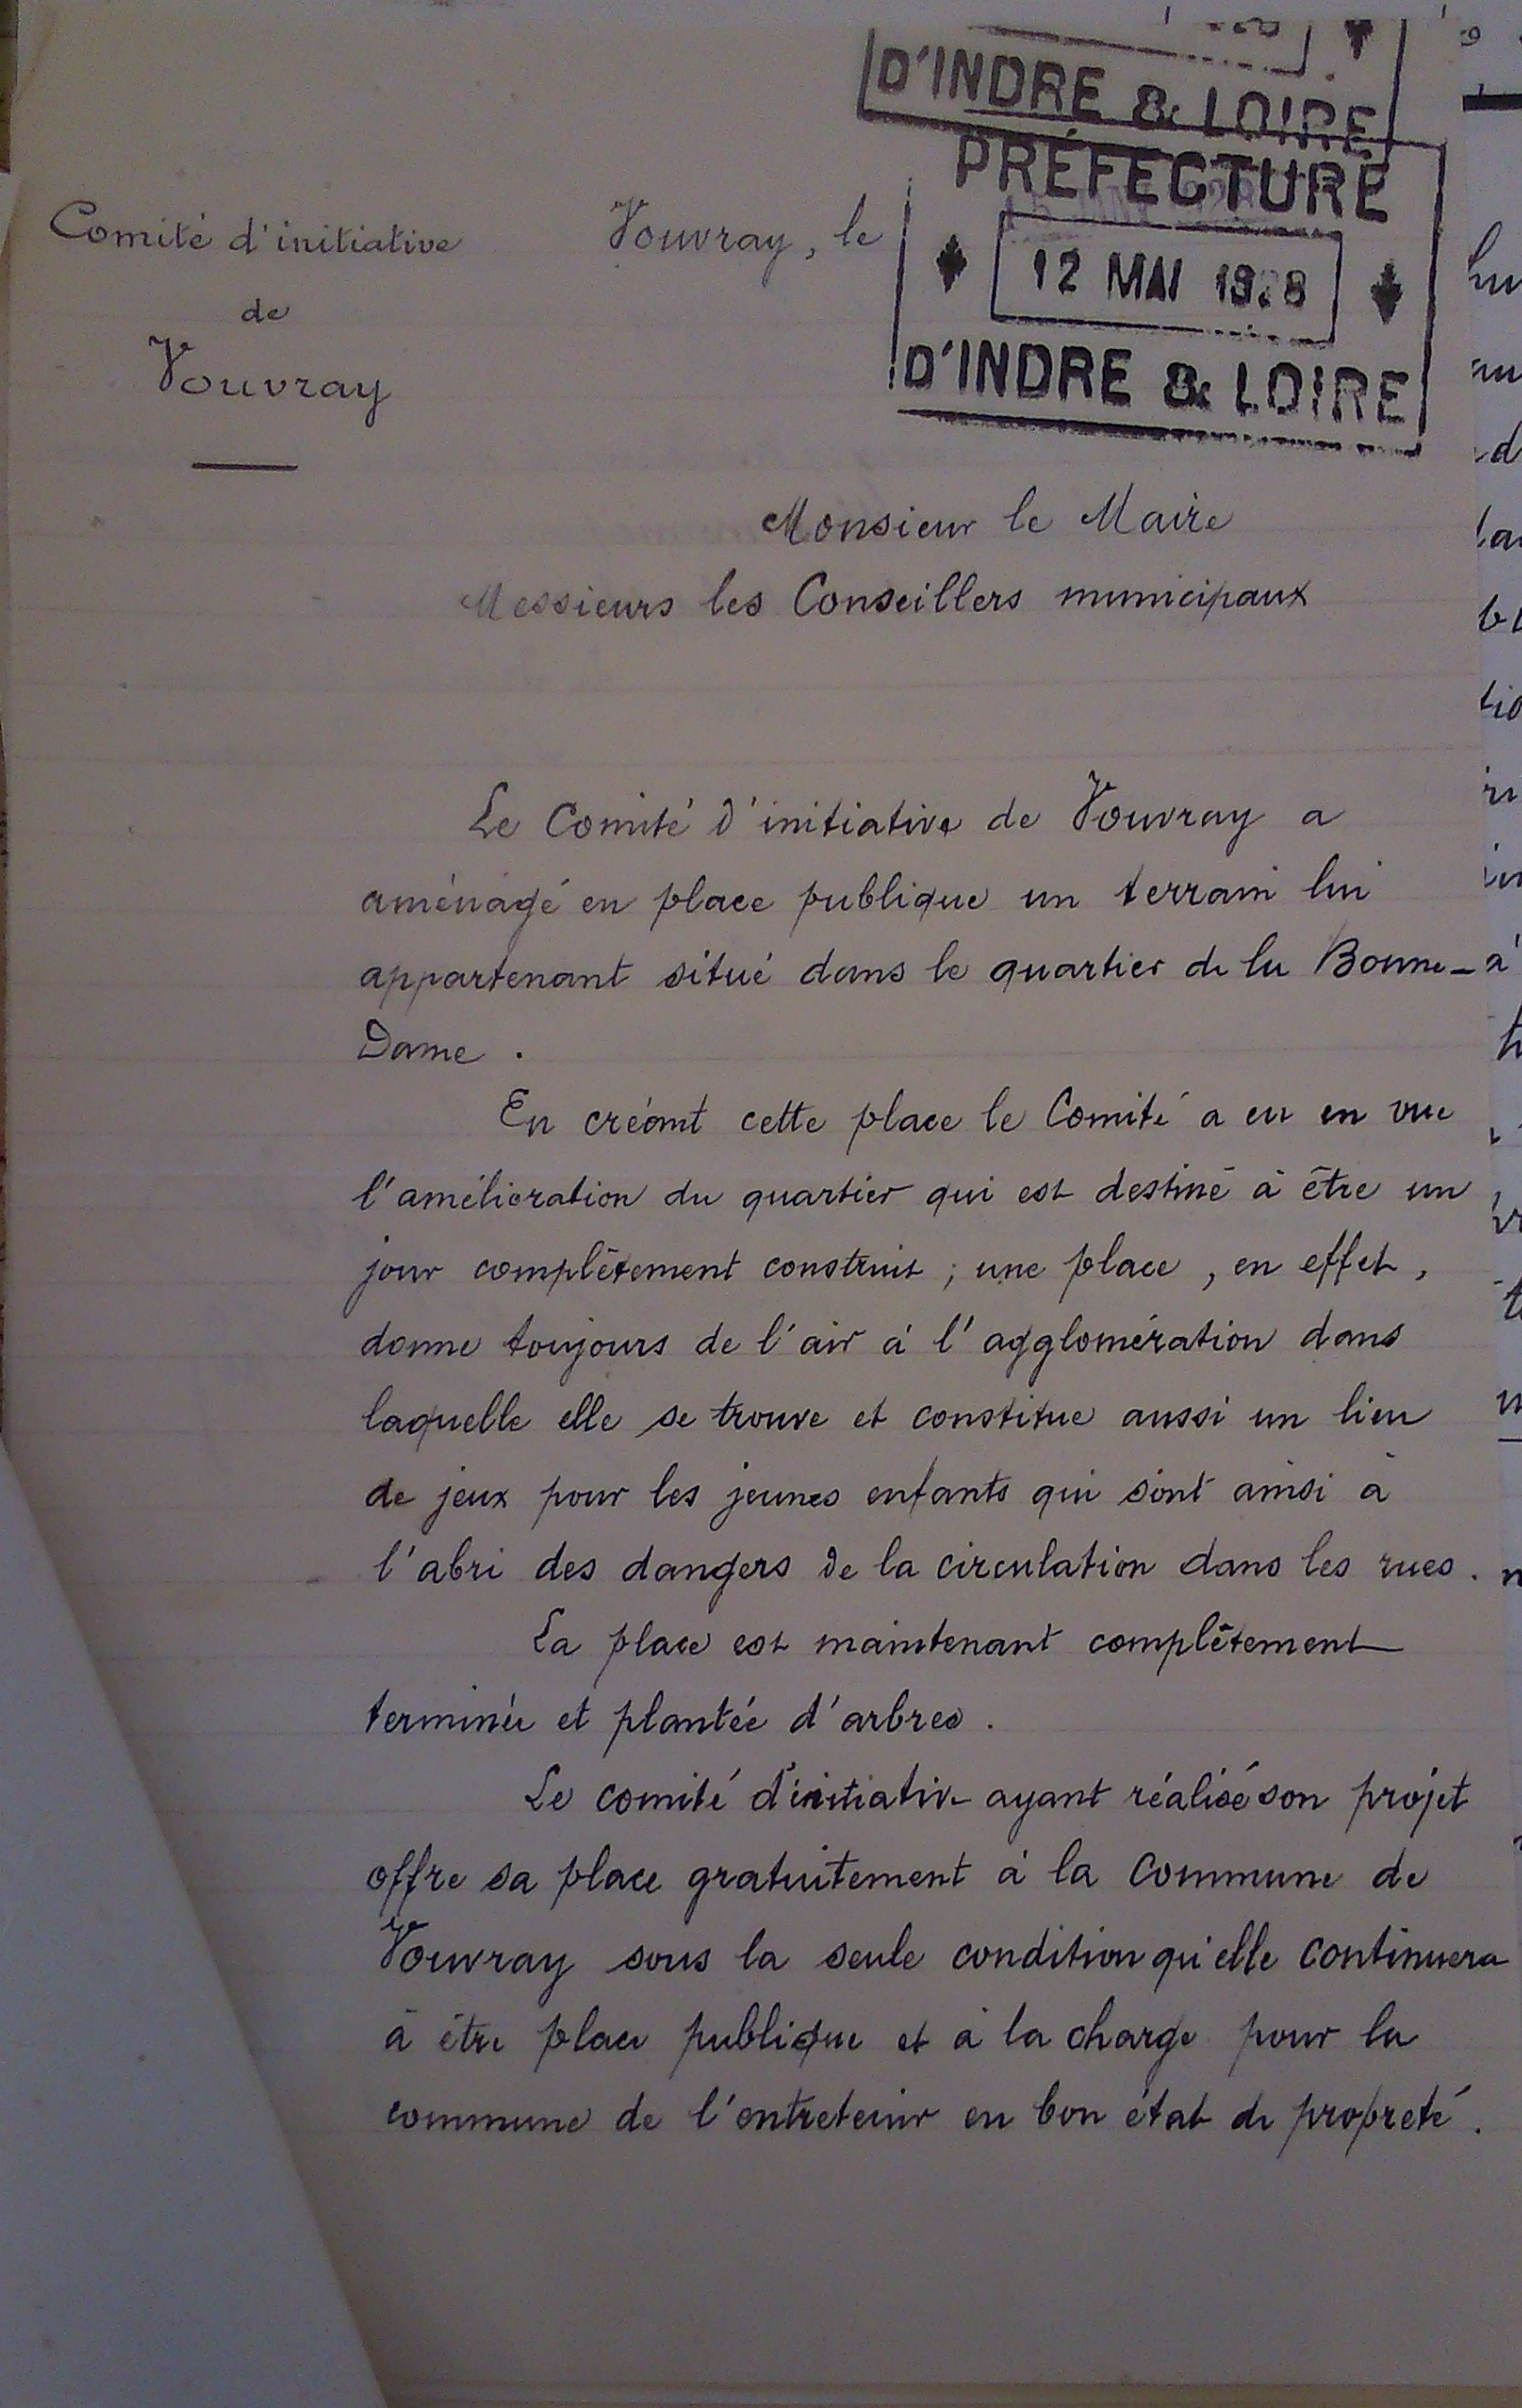 D'INDRE & LOIRE
PRÉFECTURE
Comité d'initiative
Vouvray, le
12 MAI 1928
de
Vouvray
D'INDRE & LOIRE
Monsieur le Maire
Messieurs les Conseillers municipaux
Le Comité d'initiative de Vouvray a
aménagé en place publique un terrain lui
appartenant situé dans le quartier de la Bonne-
Dame.
En créant cette place le Comité a eu en vue
l'amélioration du quartier qui est destiné à être un
jour complètement construit ; une place, en effet,
donne toujours de l'air à l'agglomération dans
laquelle elle se trouve et constitue aussi un lieu
de jeux pour les jeunes enfants qui sont ainsi à
l'abri des dangers de la circulation dans les rues.
La place est maintenant complètement
terminée et plantée d'arbres.
Le comité d'initiative ayant réalisé son projet
offre sa place gratuitement à la commune de
Vouvray sous la seule condition qu'elle continuera
à être place publique et à la charge pour la
commune de l'entretenir en bon état de propreté.